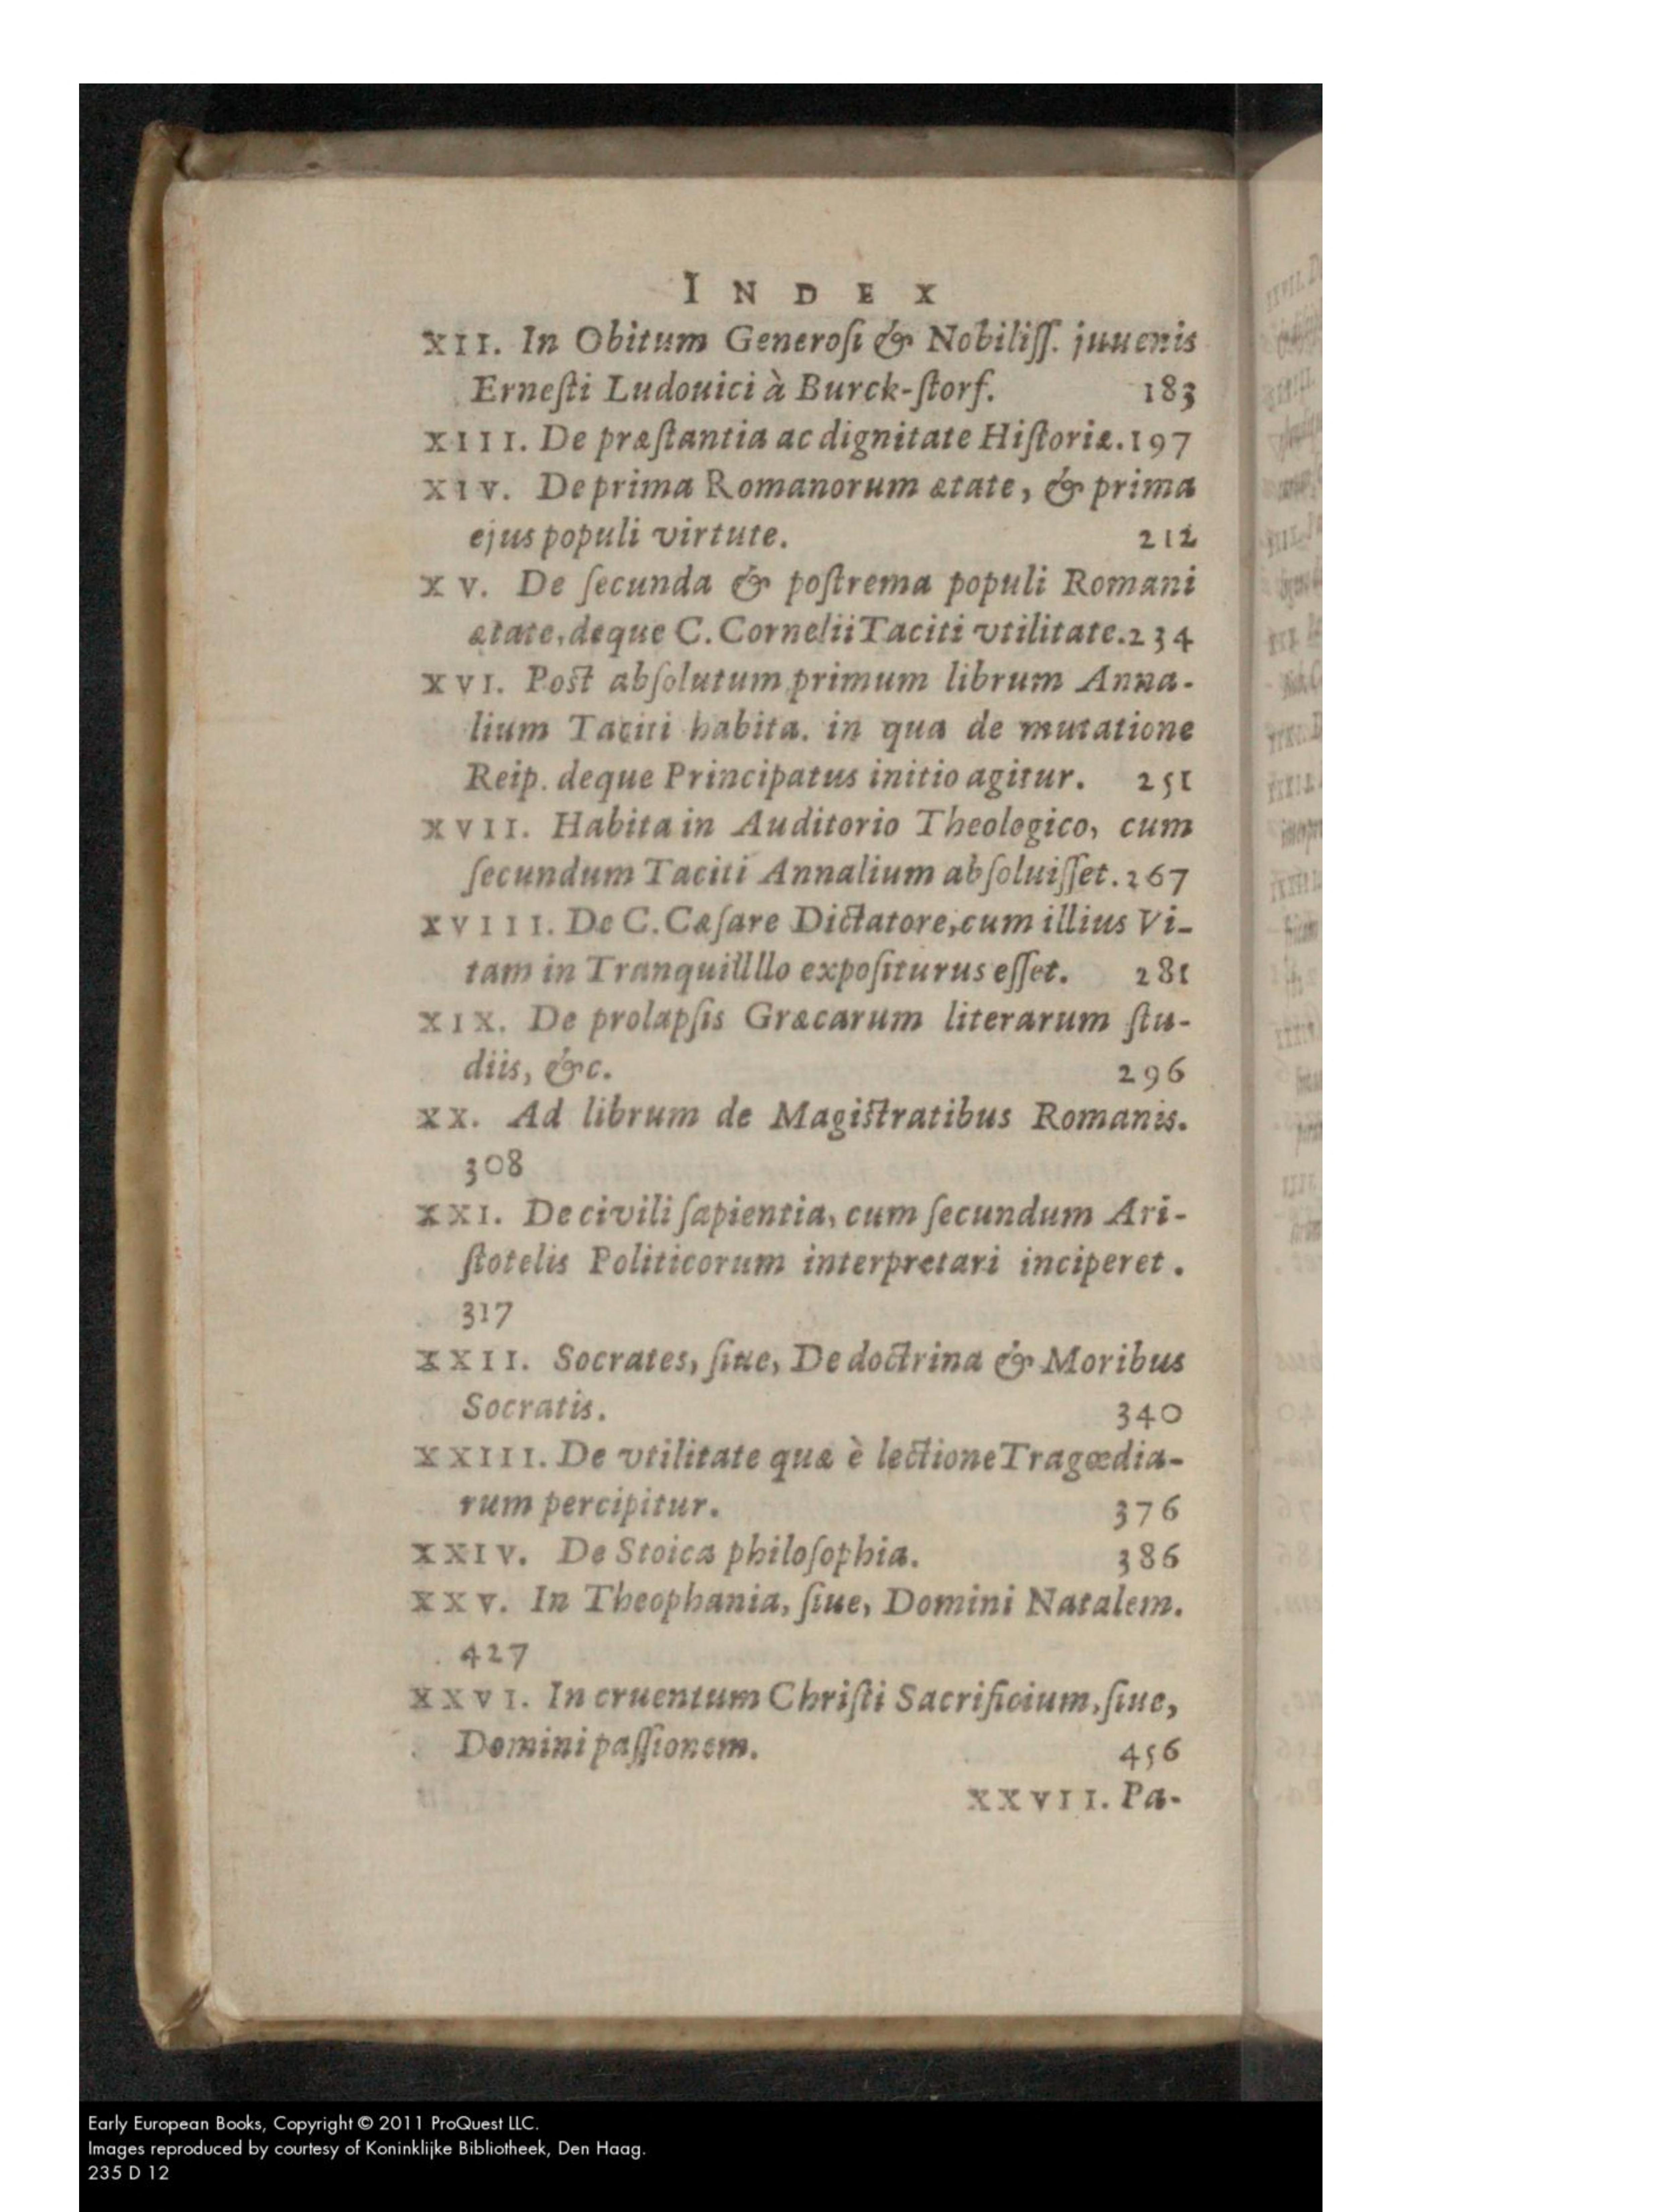 INDEX
XII. In Obitum Generoſi & Nobiliſſ. juuenis
Erneſti Ludouici à Burck-ſtorf. 183
XIII. De præſtantia ac dignitate Hiſtoriæ. 197
XIV. De prima Romanorum ætate, & prima
ejus populi virtute. 212
XV. De ſecunda & poſtrema populi Romani
ætate, deque C. Cornelii Taciti vtilitate. 234
XVI. Poſt abſolutum primum librum Anna-
lium Taciti habita. in qua de mutatione
Reip. deque Principatus initio agitur. 251
XVII. Habita in Auditorio Theologico, cum
ſecundum Taciti Annalium abſoluiſſet. 267
XVIII. De C. Cæſare Dictatore, cum illius Vi-
tam in Tranquillllo expoſiturus eſſet. 281
XIX. De prolapſis Græcarum literarum ſtu-
diis, &c. 296
XX. Ad librum de Magiſtratibus Romanis.
308
XXI. De civili ſapientia, cum ſecundum Ari-
ſtotelis Politicorum interpretari inciperet.
317
XXII. Socrates, ſiue, De doctrina & Moribus
Socratis. 340
XXIII. De vtilitate quæ è lectione Tragœdia-
rum percipitur. 376
XXIV. De Stoica philoſophia. 386
XXV. In Theophania, ſiue, Domini Natalem.
427
XXVI. In cruentum Chriſti Sacrificium, ſiue,
Domini paſſionem. 456
XXVII. Pa-
Early European Books, Copyright © 2011 ProQuest LLC.
Images reproduced by courtesy of Koninklijke Bibliotheek, Den Haag.
235 D 12